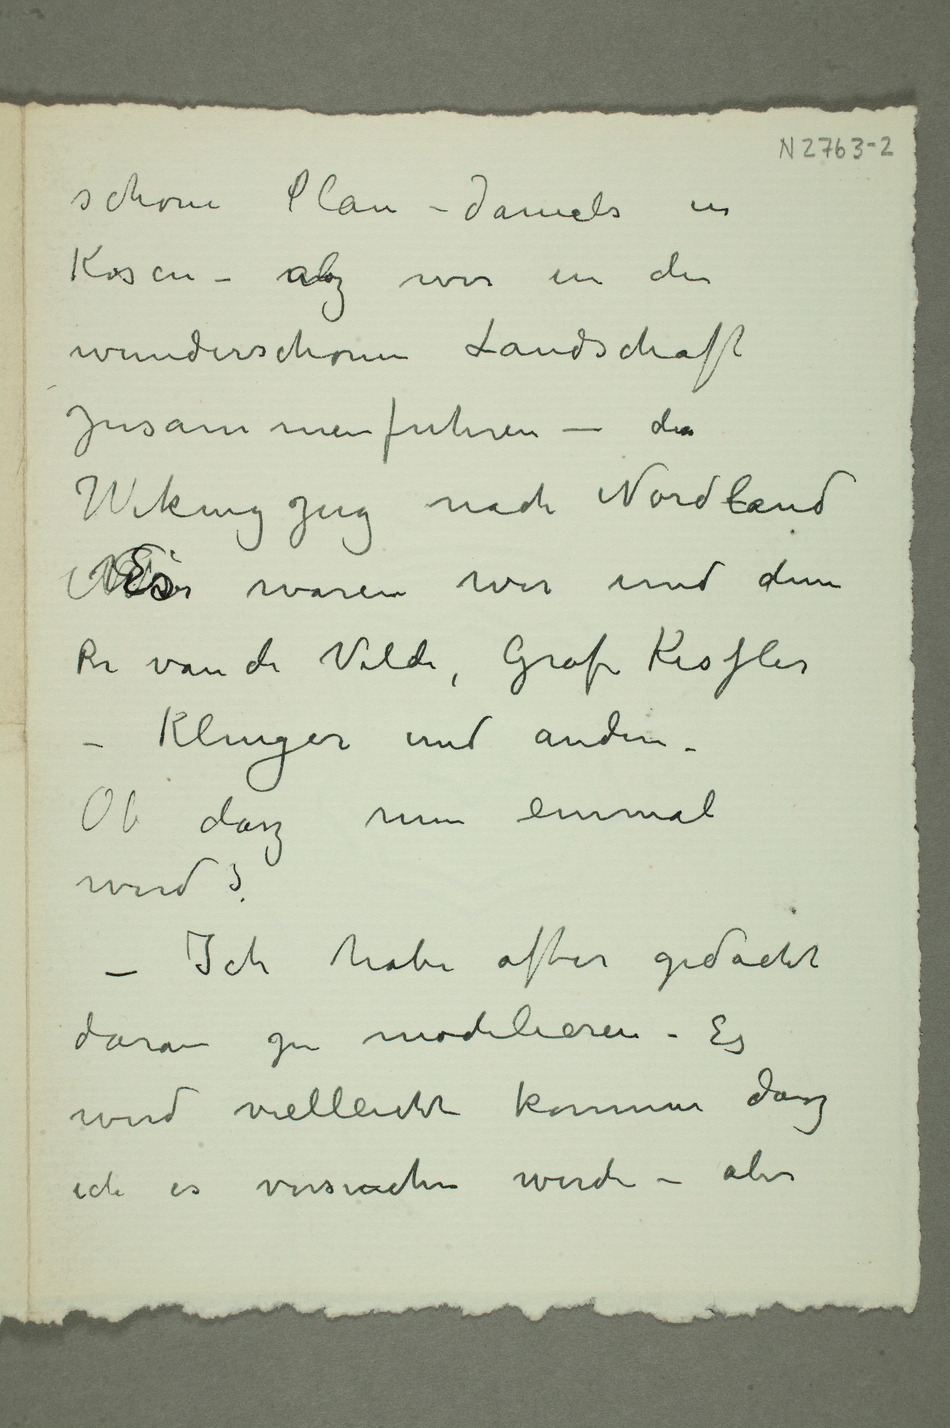 N 2763-2
schöne Plan – damals in
Kösen – alz wir in der
wunderschönen Landschaft
zusammenfuhren – der
Wikingzug nach Nordland
Es waren wir und dem
van de Velde, Graf Kesszler
– Klinger und andere –
Ob dasz nun einmal
wird?
– Ich habe öfter gedacht
daran zu modelieren – Es
wird vielleicht kommen dasz
ich es versuchen werde – aber